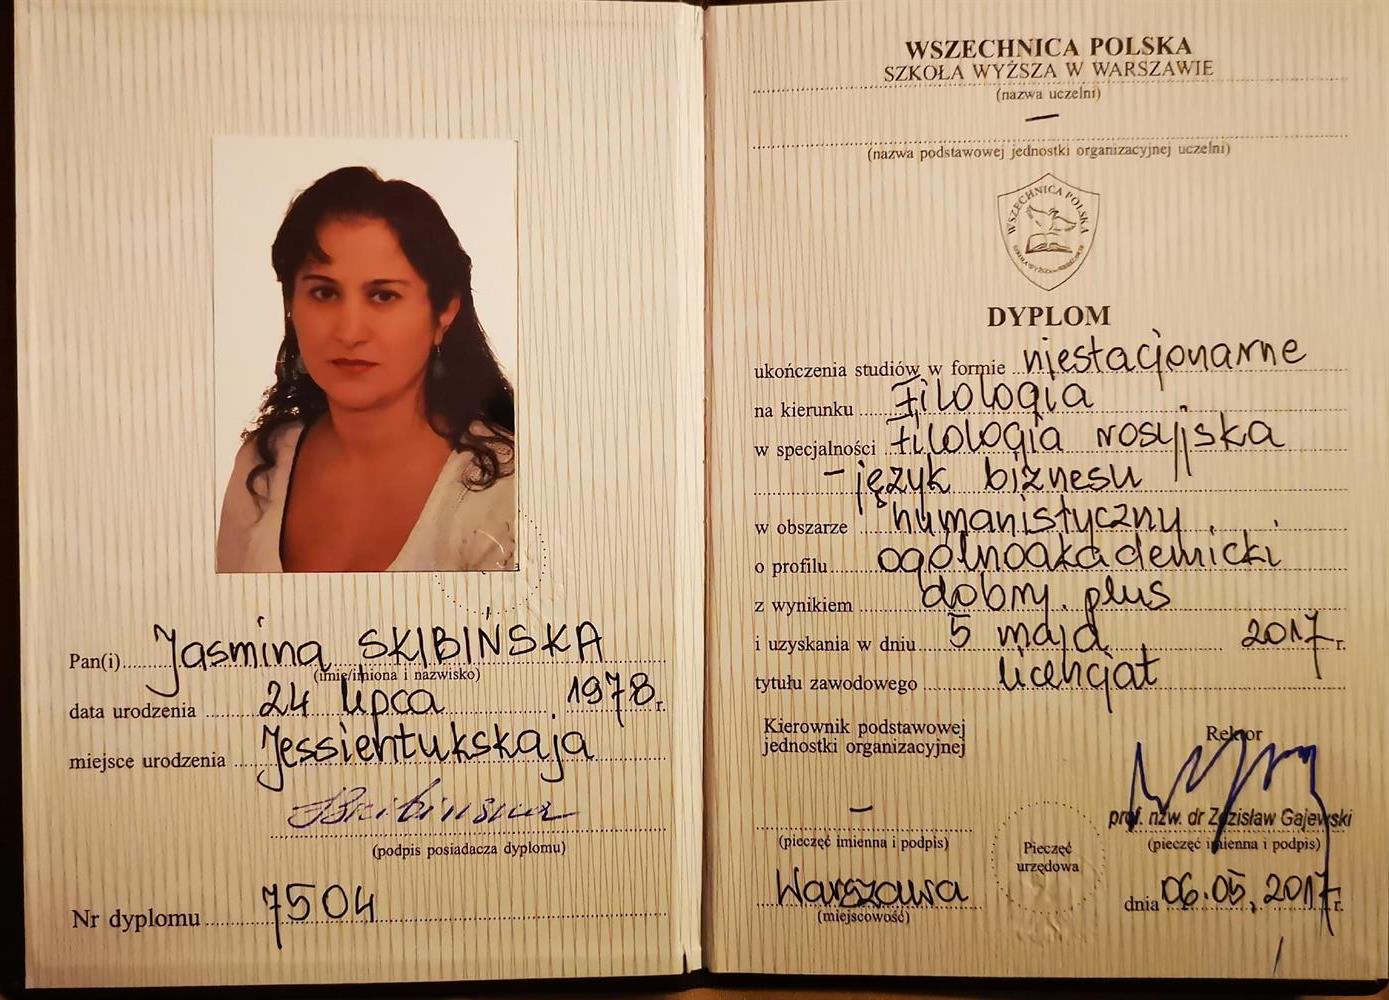 Pan(i) Jasmina SKIBIŃSKA
(imię/imiona i nazwisko)
data urodzenia 24 lipca 1978 r.
miejsce urodzenia Jessientukskaja
(podpis posiadacza dyplomu)
Nr dyplomu 7504
WSZECHNICA POLSKA
SZKOŁA WYŻSZA W WARSZAWIE
(nazwa uczelni)
—
(nazwa podstawowej jednostki organizacyjnej uczelni)
WSZECHNICA POLSKA
DYPLOM
ukończenia studiów w formie niestacjonarne
na kierunku Filologia
w specjalności Filologia rosyjska
– język biznesu
w obszarze humanistyczny
o profilu ogólnoakademicki
z wynikiem dobry plus
i uzyskania w dniu 5 maja 2017 r.
tytułu zawodowego licencjat
Kierownik podstawowej
jednostki organizacyjnej
–
(pieczęć imienna i podpis)
Rektor
prof. nzw. dr Zdzisław Gajewski
(pieczęć imienna i podpis)
Pieczęć
urzędowa
Warszawa
(miejscowość)
dnia 06.05.2017 r.